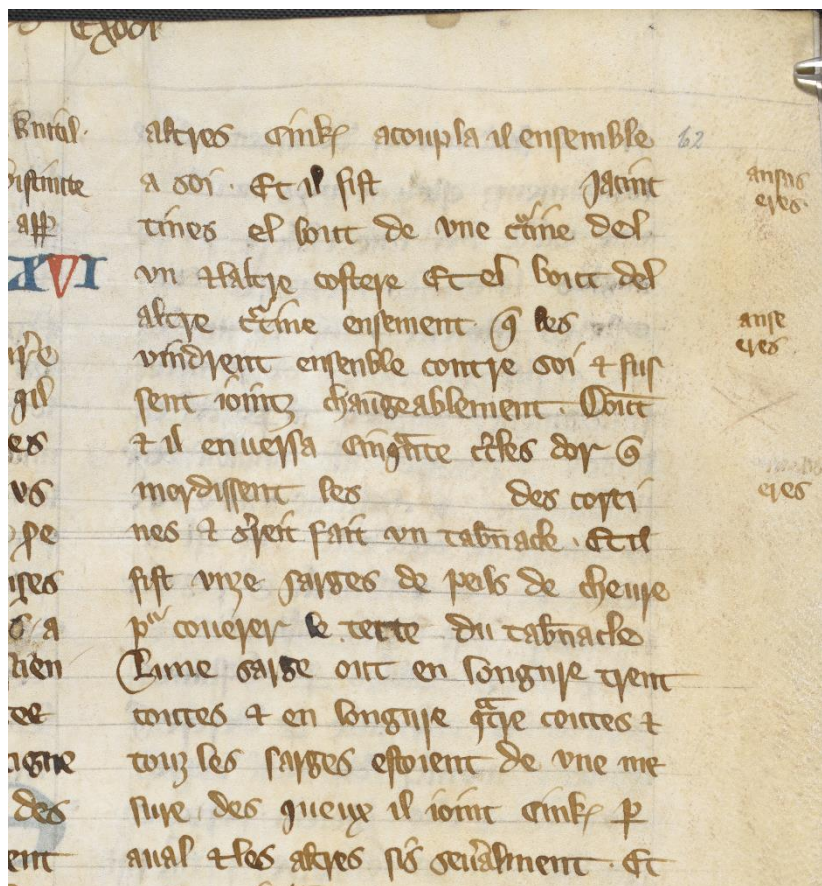 Exodi
altres Cink acoupla il ensemble
a soi . Et il fist jacint
tines el bout de vne cˀtine del
vn ⁊ laltre costere Et el bout del
altre cˀtine ensement . q̄ les
vindrent ensenble contre soi ⁊ fus
sent iointz chaūgeablement . Dōūt
⁊ il enuersa Cinqˀnte cˀcles dor q̄
mordissent les des corti
nes ⁊ sˀreit fait vn tabˀnacle . Et il
fist vnze sarges de peils de cheure
pᵘ couerer le tette du tabˀnacle
Lune sarge out en longure trent
coutes ⁊ en longure qᵃtre coutes ⁊
touz les sarges estoient de vne me
sure . des queux il ioint Cink ꝑ
aual ⁊ les altres sis seuˀalment . Et
62
ansus
eres
anse
eres
eres
knitil .
distincte
app̄
XVI
qil
es
vs
ꝑe
a
rien
des
ent